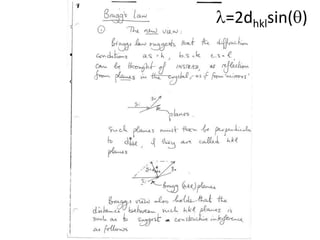 λ=2dhklsin(θ)
Bragg's Law
The view:
Bragg's law suggests that the diffraction
conditions a.s = h, b.s = k, c.s = l,
can be thought of instead, as reflection
from planes in the crystal, as if from mirrors
planes.
Such planes must then be perpendicular
to , if they are called hkl
planes
Bragg (hkl) planes
Bragg's view also holds that the
distance between such hkl planes is
such as to suggest constructive interference
as follows